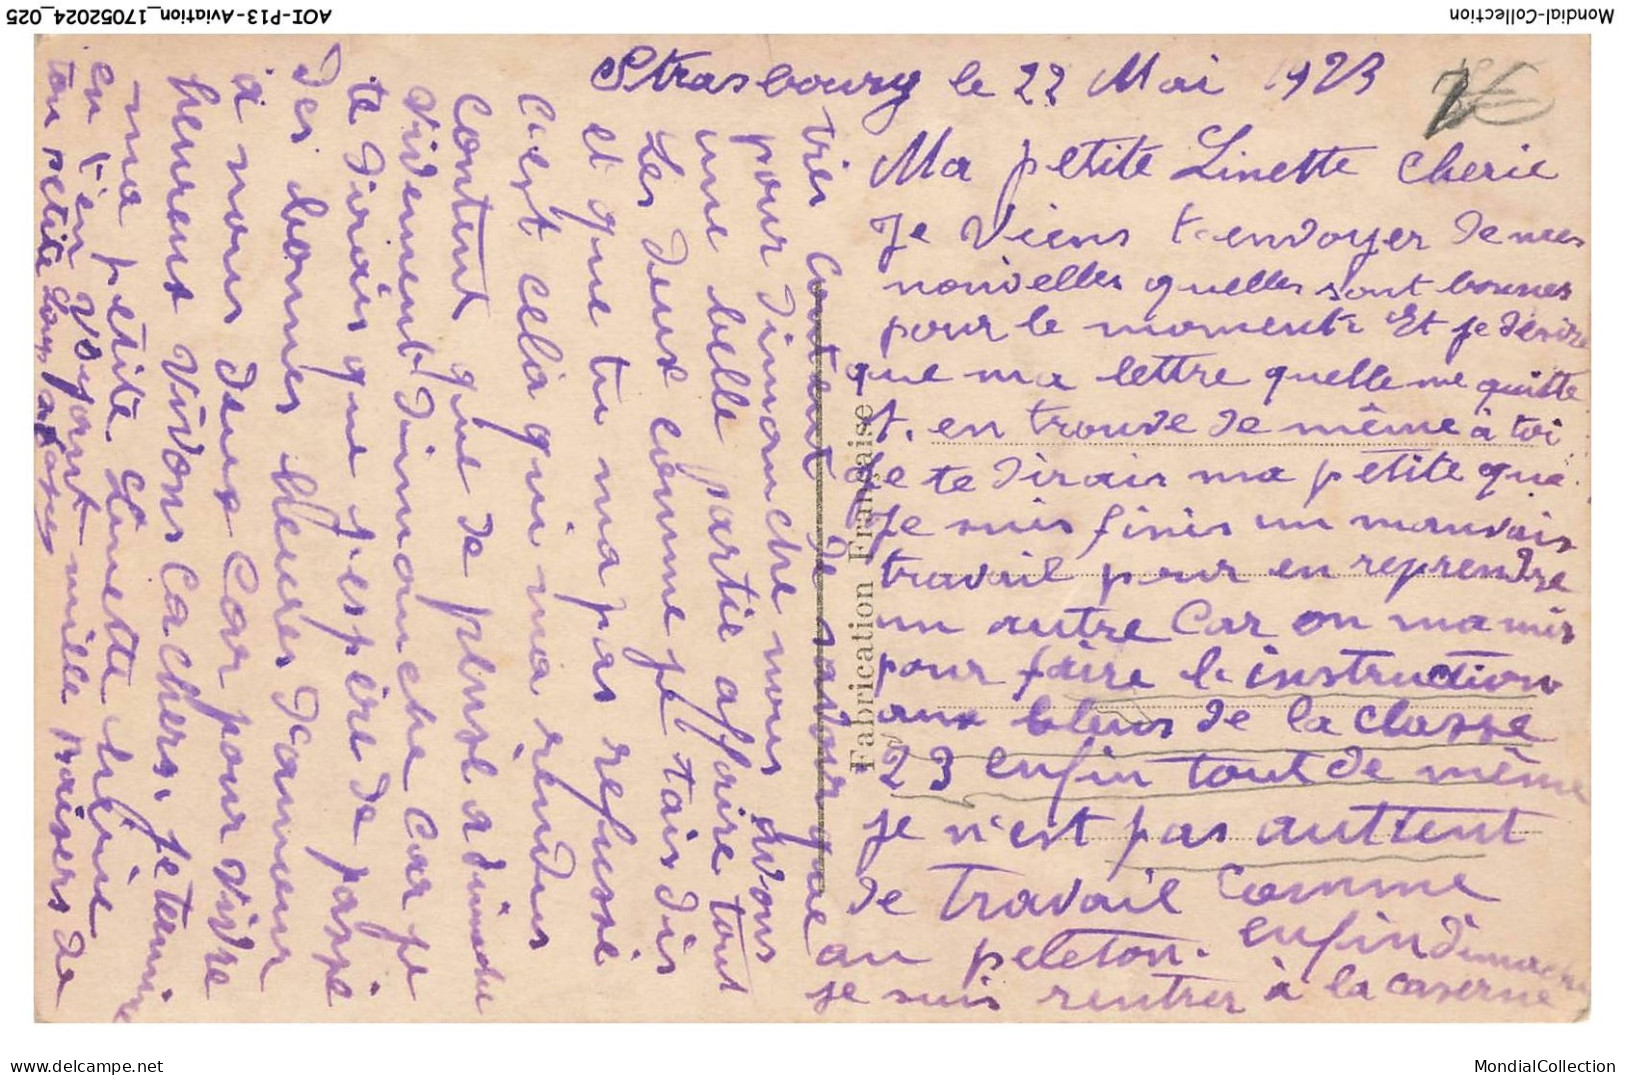 AOI-P13-Aviation_17052024_025
Mondial-Collection
Strasbourg le 22 Mai 1923
Ma petite Linette Cherie
Je Viens t-envoyer de mes
nouvelles quelles sont bonnes
pour le moment. Et je désire
que ma lettre quelle me quitte
t. en trouve de même à toi
Je te dirais ma petite que
Je suis finis un mauvais
travail pour en reprendre
un autre Car on ma mis
pour faire l'instruction
aux bleus de la classe
23 enfin tout de même
je n'est pas auttent
de travail Comme
au peleton. enfin dimanche
je suis rentrer à la caserne
très Content de savoir que
pour dimanche nous avons
une belle partie affaire tout
Les deux comme je tais dis
et que tu ma pas refussé
C'est cela qui ma rendus
Content que de pluse
évidement dimanche Car je
te dirais que j'espère de passé
des bonnes heures d'amour
à nous deux Car pour vivre
heureux Vivons Cachers, je termine
ma petite Linette chérie
en t'en Voyant mille Baisers de
ton petite
Fabrication Française
delcampe.net
MondialCollection